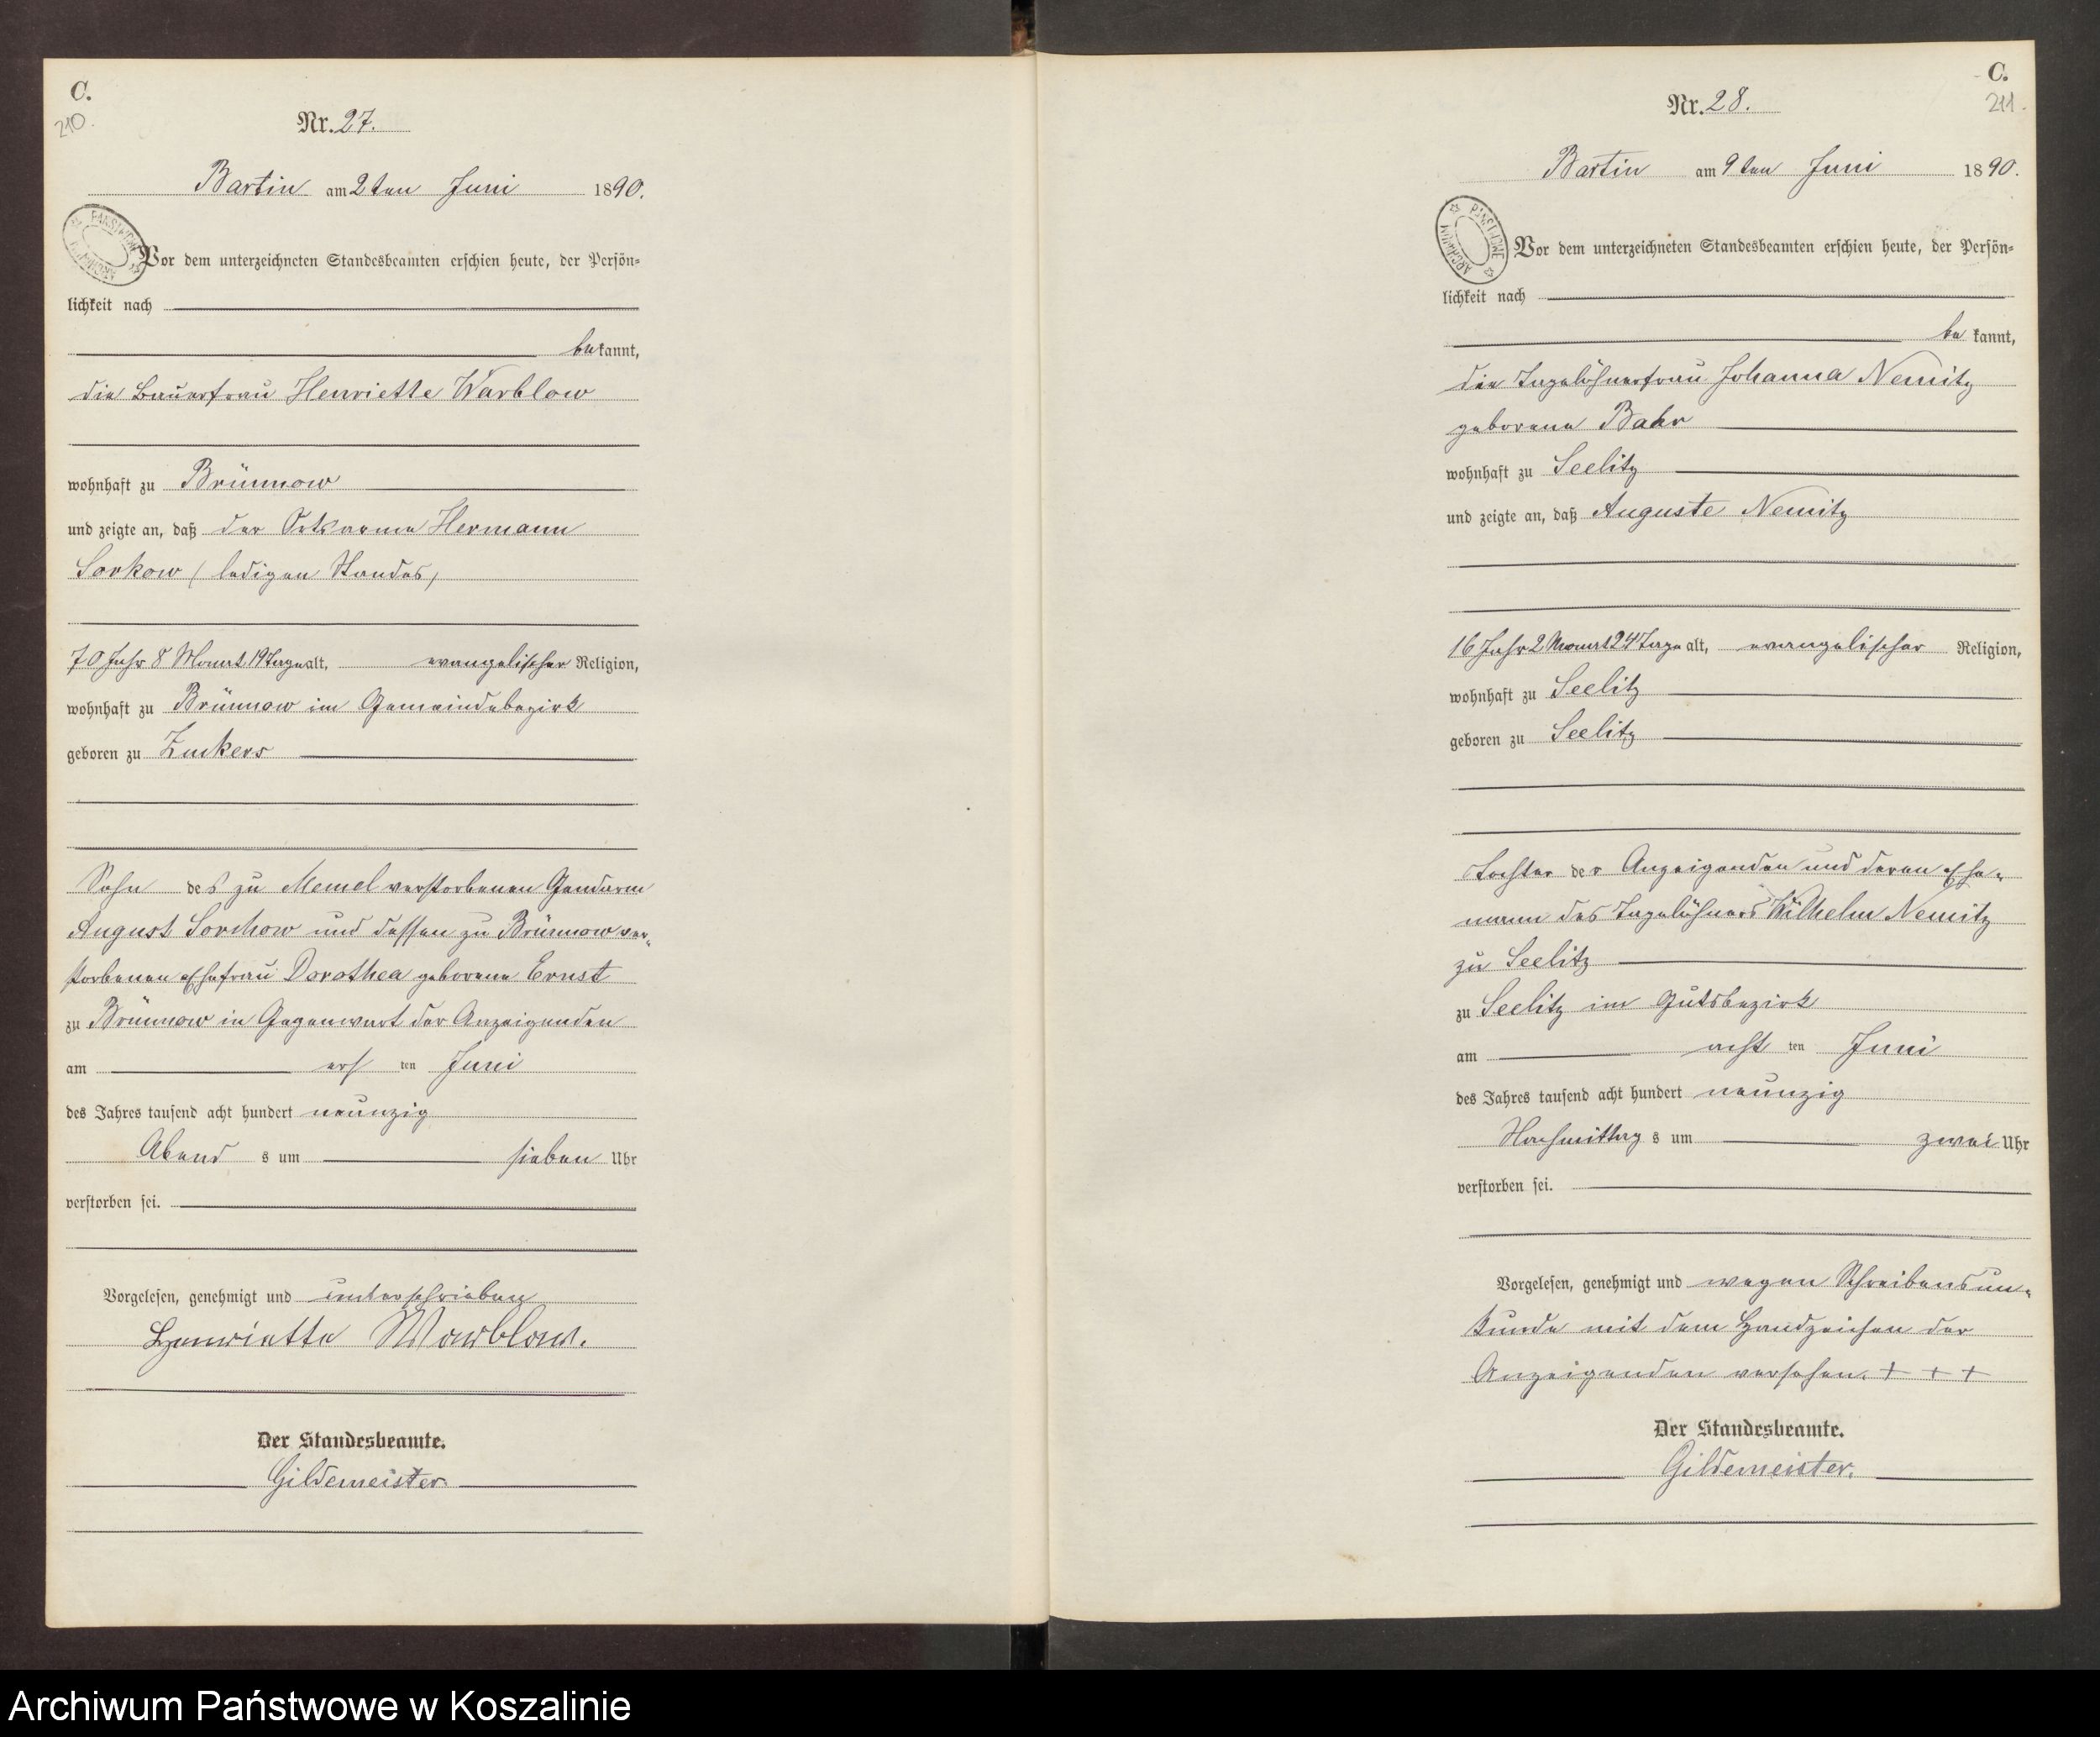 C.
210.
Nr. 27.
Bartin am 2ten Juni 1890.
Vor dem unterzeichneten Standesbeamten erschien heute, der Persön-
lichkeit nach
bekannt,
die Bauerfrau Henriette Warblow
wohnhaft zu Brünnow
und zeigte an, daß der Ortsarme Hermann
Sorkow (ledigen Standes)
70 Jahr 8 Monat 19 Tage alt, evangelischer Religion,
wohnhaft zu Brünnow im Gemeindebezirk
geboren zu Zuckers
Sohn des zu Memel verstorbenen Gendarm
August Sorchow und dessen zu Brünnow ver-
storbenen Ehefrau Dorothea geborene Ernst
zu Brünnow in Gegenwart der Anzeigenden
am ersten Juni
des Jahres tausend acht hundert neunzig
Abends um sieben Uhr
verstorben sei.
Vorgelesen, genehmigt und unterschrieben
Henriette Warblow.
Der Standesbeamte.
Gildemeister
C.
211.
Nr. 28.
Bartin am 9ten Juni 1890.
PAŃSTWOWE ARCHIWUM
Vor dem unterzeichneten Standesbeamten erschien heute, der Persön-
lichkeit nach
bekannt,
die Tagelöhnerfrau Johanna Nemitz
geborene Bahr
wohnhaft zu Seelitz
und zeigte an, daß Auguste Nemitz
16 Jahr 2 Monat 24 Tage alt, evangelischer Religion,
wohnhaft zu Seelitz
geboren zu Seelitz
Tochter der Anzeigenden und deren Ehe-
mann des Tagelöhners Wilhelm Nemitz
zu Seelitz
zu Seelitz im Gutsbezirk
am achtten Juni
des Jahres tausend acht hundert neunzig
Nachmittags um zwei Uhr
verstorben sei.
Vorgelesen, genehmigt und wegen Schreibensun-
kunde mit dem Handzeichen der
Anzeigenden versehen. + + +
Der Standesbeamte.
Gildemeister.
Archiwum Państwowe w Koszalinie